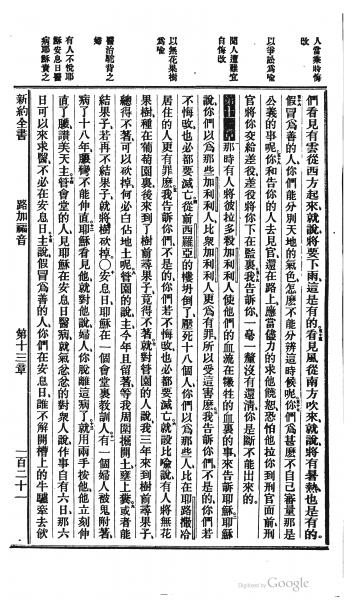 人當乘時悔改
以爭訟爲喻
聞人遭難宜自悔改
以無花果樹爲喻
醫治駝背之婦
有人不悅耶穌安息日醫病耶穌責之
們看見有雲從西方起來就說將要下雨這是有的看見風從南方吹來就說將有暑熱也是有的
假冒爲善的人你們能分別天地的氣色怎麽不能分辨這時候呢你們爲甚麽不自己審量那是
公義的事呢你和告你的人去見官還在路上應當儘力的求他饒恕恐怕他拉你到刑官面前刑
官將你交給差役差役將你下在監裏我告訴你一毫一釐沒有還清你是斷不能出來的
第十三章 那時有人將彼拉多殺加利利人使他們的血流在犧牲的血裏的事來告訴耶穌耶穌
說你們以爲那些加利利人比衆加利利人更爲有罪所以受這害麽我告訴你們不是的你們若
不悔改也必都要滅亡從前西羅亞的樓坍倒了壓死十八個人你們以爲那些人比在耶路撒冷
居住的人更有罪麽我告訴你們不是的你們若不悔改也必都要滅亡就設比喻說有人將無花
果樹種在葡萄園裏後來到了樹前尋果子竟得不著就對管園的人說我三年來到樹前尋果子
總得不著可以砍掉何必白佔地土呢管園的說主今年且留著等我周圍掘開土壅上糞或者能
結果子若再不結果子就將樹砍掉○安息日耶穌在一個會堂裏教訓人有一個婦人被鬼附著
病了十八年腰彎不能伸直耶穌看見他就對他說婦人你脫離這病了就用兩手按他他立刻伸
直了腰讚美天主管會堂的人見耶穌在安息日醫病就氣忿忿的對衆人說作事自有六日那六
日可以來求醫不必在安息日主說假冒爲善的人你們在安息日誰不解開槽上的牛驢牽去飲
新約全書 路加福音 第十三章 一百二十一
Digitized by Google